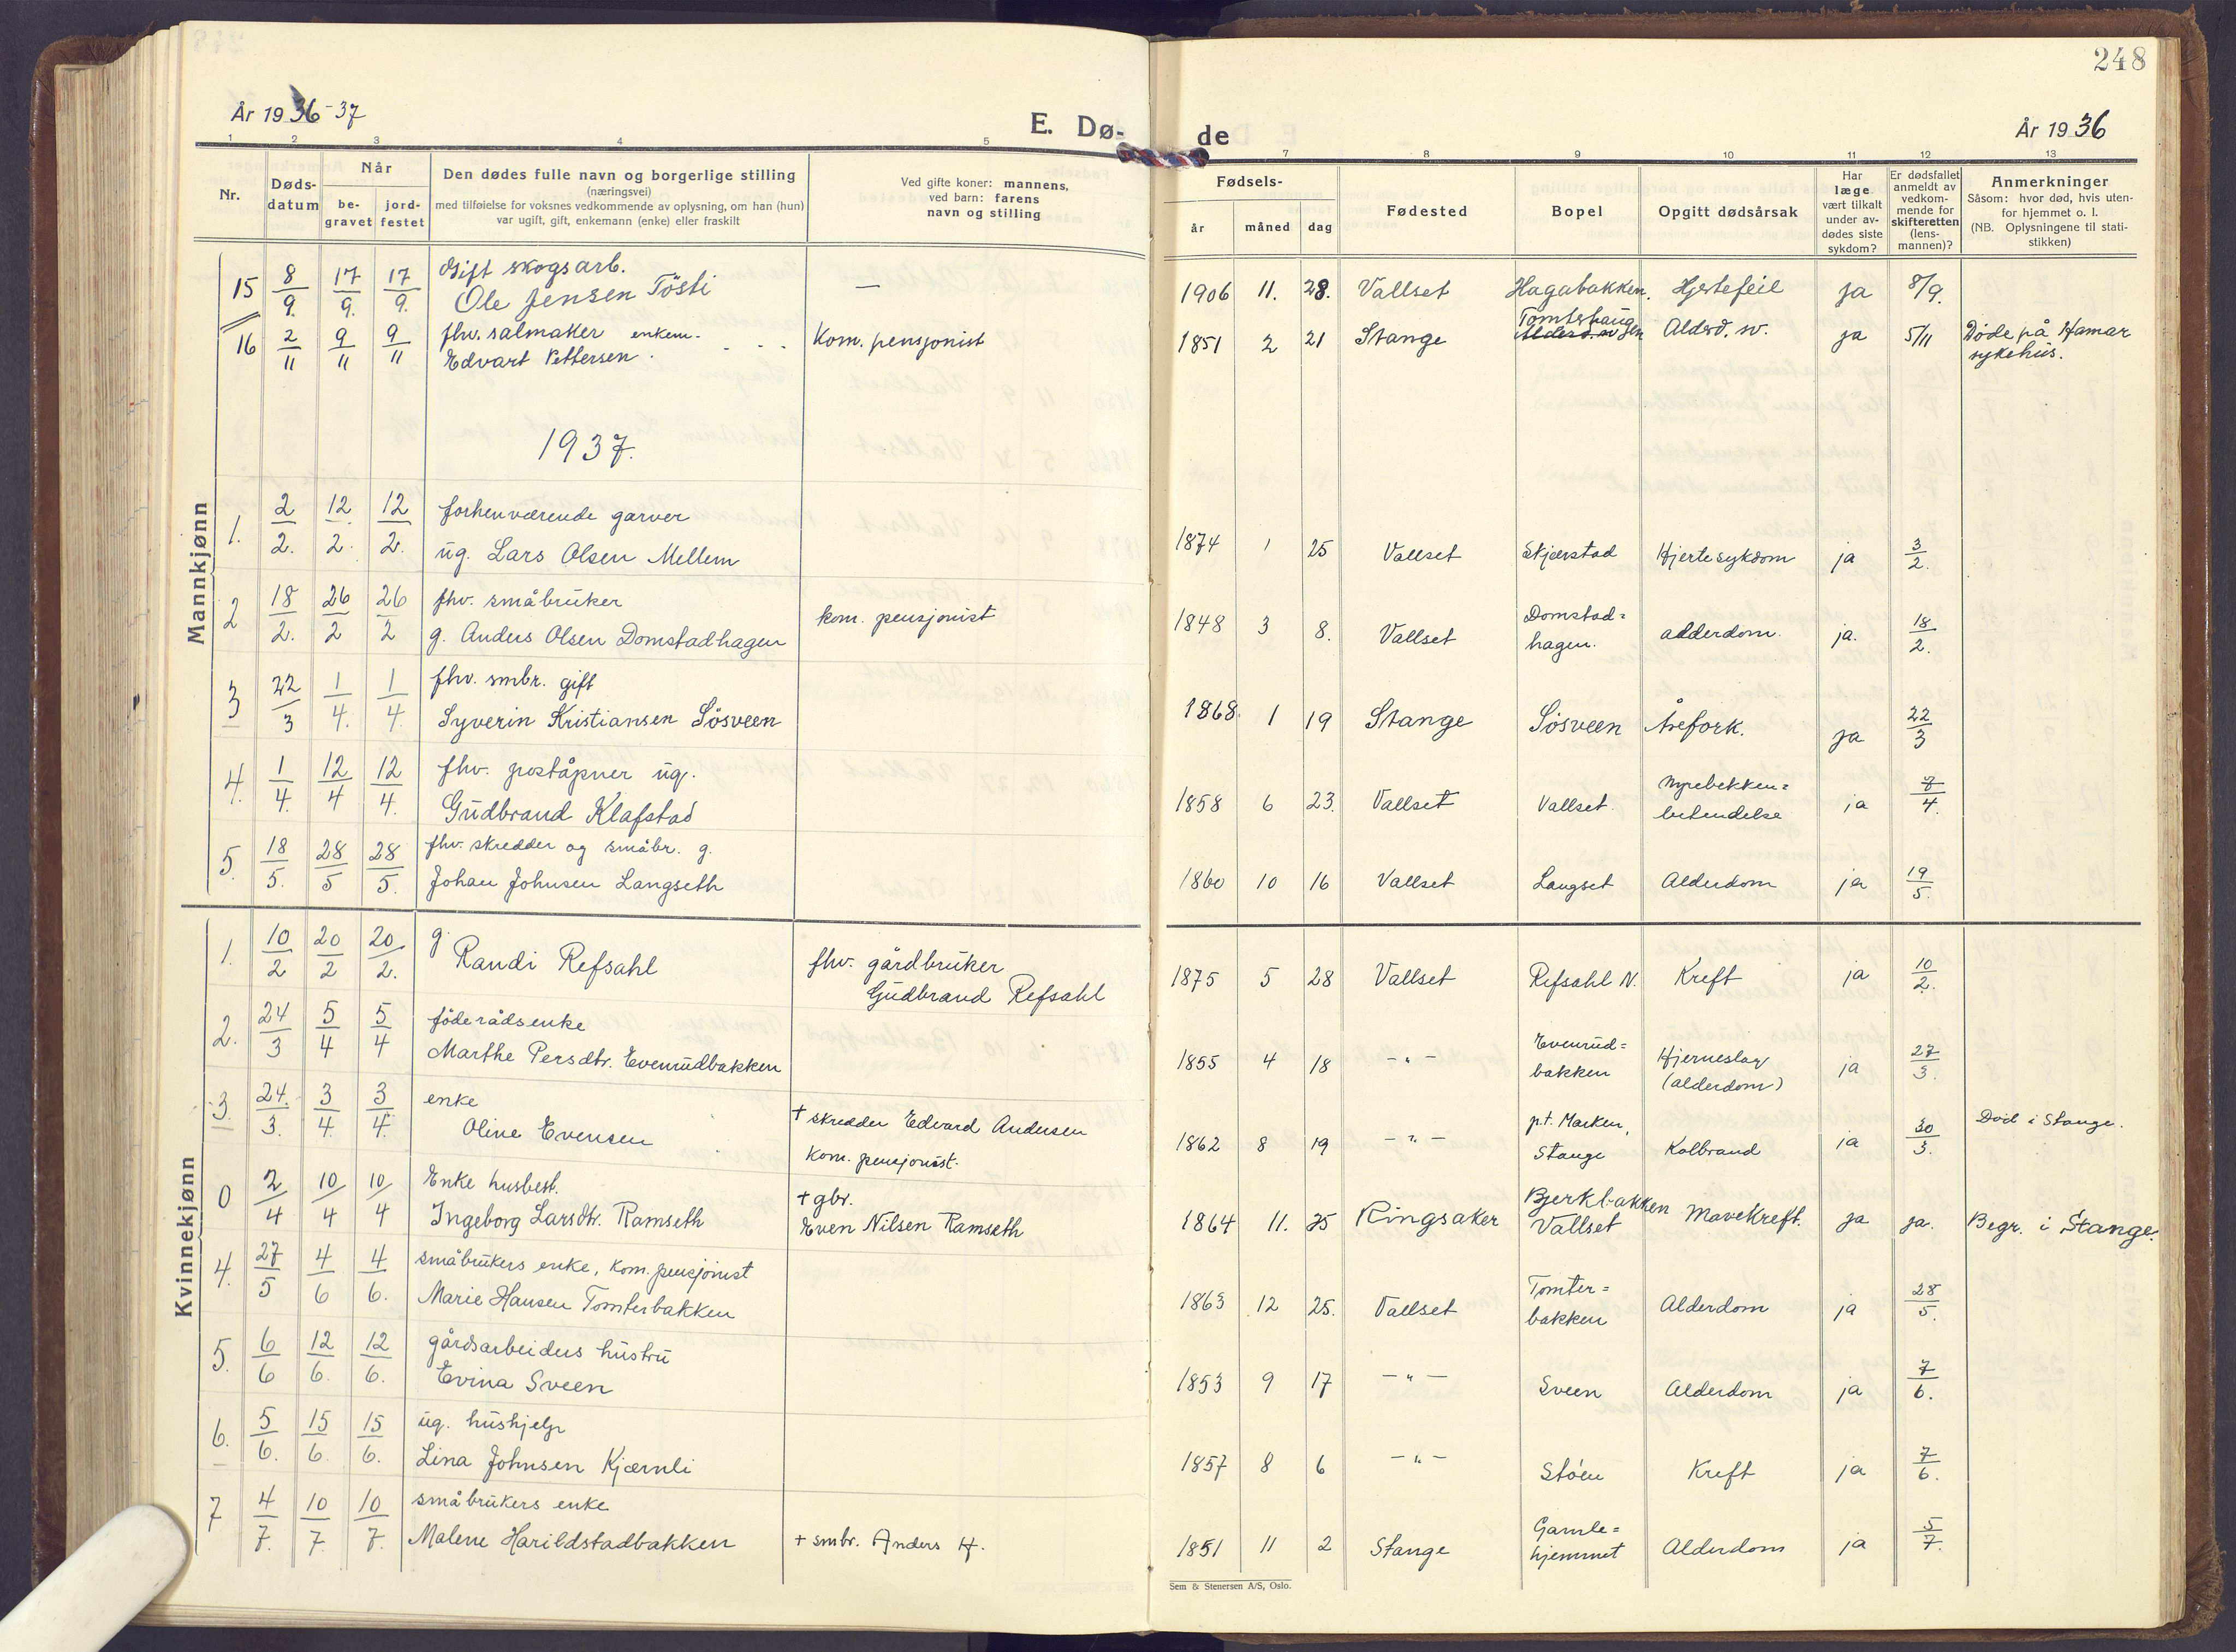 248
År 1936-37
E. Dø-
de
År 1936
1 2 3 4 5 7 8 9 10 11 12 13
Nr.
Døds-
datum
Når
be-
gravet
jord-
festet
Den dødes fulle navn og borgerlige stilling
(næringsvei)
med tilføielse for voksnes vedkommende av oplysning, om han (hun)
var ugift, gift, enkemann (enke) eller fraskilt
Ved gifte koner: mannens,
ved barn: farens
navn og stilling
Fødsels-
år måned dag
Fødested
Bopel
Opgitt dødsårsak
Har
læge
vært tilkalt
under av-
dødes siste
sykdom?
Er dødsfallet
anmeldt av
vedkom-
mende for
skifteretten
(lens-
mannen)?
Anmerkninger
Såsom: hvor død, hvis uten-
for hjemmet o. l.
(NB. Oplysningene til stati-
stikken)
Mannkjønn
15 8/9. 17/9. 17/9. Gift skogsarb.
Ole Jensen Tösti — 1906 11. 28. Vallset Hagabakken. Hjertefeil ja 8/9.
16 2/11 9/11 9/11 fhv. salmaker enkem.
Edvart Pettersen. Kom. pensjonist 1851 2 21 Stange Tomterhaug Alderd. sv. ja 5/11 Döde på Hamar
sykehus.
1937.
1. 2/2. 12/2. 12/2. forhenværende garver
ug. Lars Olsen Mellem 1874 1 25 Vallset Skjerstad Hjertesykdom ja 3/2.
2 18/2. 26/2 26/2 fhv. småbruker
g. Anders Olsen Domstadhagen kom. pensjonist 1848 3 8. Vallset Domstad=
hagen. alderdom. ja. 18/2.
3 22/3 1/4. 1/4. fhv. smbr. gift
Syverin Kristiansen Sösveen 1868. 1 19 Stange Sösveen Årefork. ja 22/3
4. 1/4. 12/4 12/4. fhv. poståpner ug.
Gudbrand Klafstad 1858 6 23. Vallset Vallset. Nyrebekken=
betendelse ja 7/4.
5. 18/5. 28/5 28/5. fhv. skredder og småbr. g.
Johan Johnsen Langseth 1860 10 16 Vallset Langset Alderdom ja 19/5.
Kvinnekjønn
1. 10/2 20/2 20/2. g.
Randi Refsahl fhv. gårdbruker
Gudbrand Refsahl 1875 5 28 Vallset Refsahl N. Kreft ja 10/2.
2. 24/3 5/4 5/4 föderådsenke
Marthe Persdtr. Evenrudbakken 1855 4 18 - " - Evenrud=
bakken Hjerneslag
(alderdom) ja 27/3.
3. 24./3. 3/4. 3/4. enke
Oline Evensen + skredder Edvard Andersen
Kom. pensjonist. 1862 8 19 - " - p.t. Marken,
Stange Kolbrand ja 30/3. Död i Stange.
0 2/4 10/4 10/4 Enke husbest.
Ingeborg Larsdtr. Ramseth + gbr.
Even Nilsen Ramseth 1864 11. 25 Ringsaker Bjerkbakken
Vallset Mavekreft. ja ja. Begr. i Stange.
4. 27/5 4/6 4/6. småbrukers enke, kom. pensjonist
Marie Hansen Tomterbakken 1863 12 25. Vallset Tomter=
bakken Alderdom ja 28/5.
5. 6/6 12/6. 12/6. gårdsarbeiders hustru
Evina Sveen 1853 9 17 - " - Sveen Alderdom ja 7/6.
6. 5/6. 15/6. 15/6. ug. hushjelp
Lina Johnsen Kjærnli 1857 8 6 - " - Stöen Kreft ja 7/6.
7 4/7. 10/7. 10/7. småbrukers enke
Malene Harildstadbakken + smbr. Anders H. 1851 11 2 Stange Gamle=
hjemmet Alderdom ja 5/7.
Sem & Stenersen A/S, Oslo.